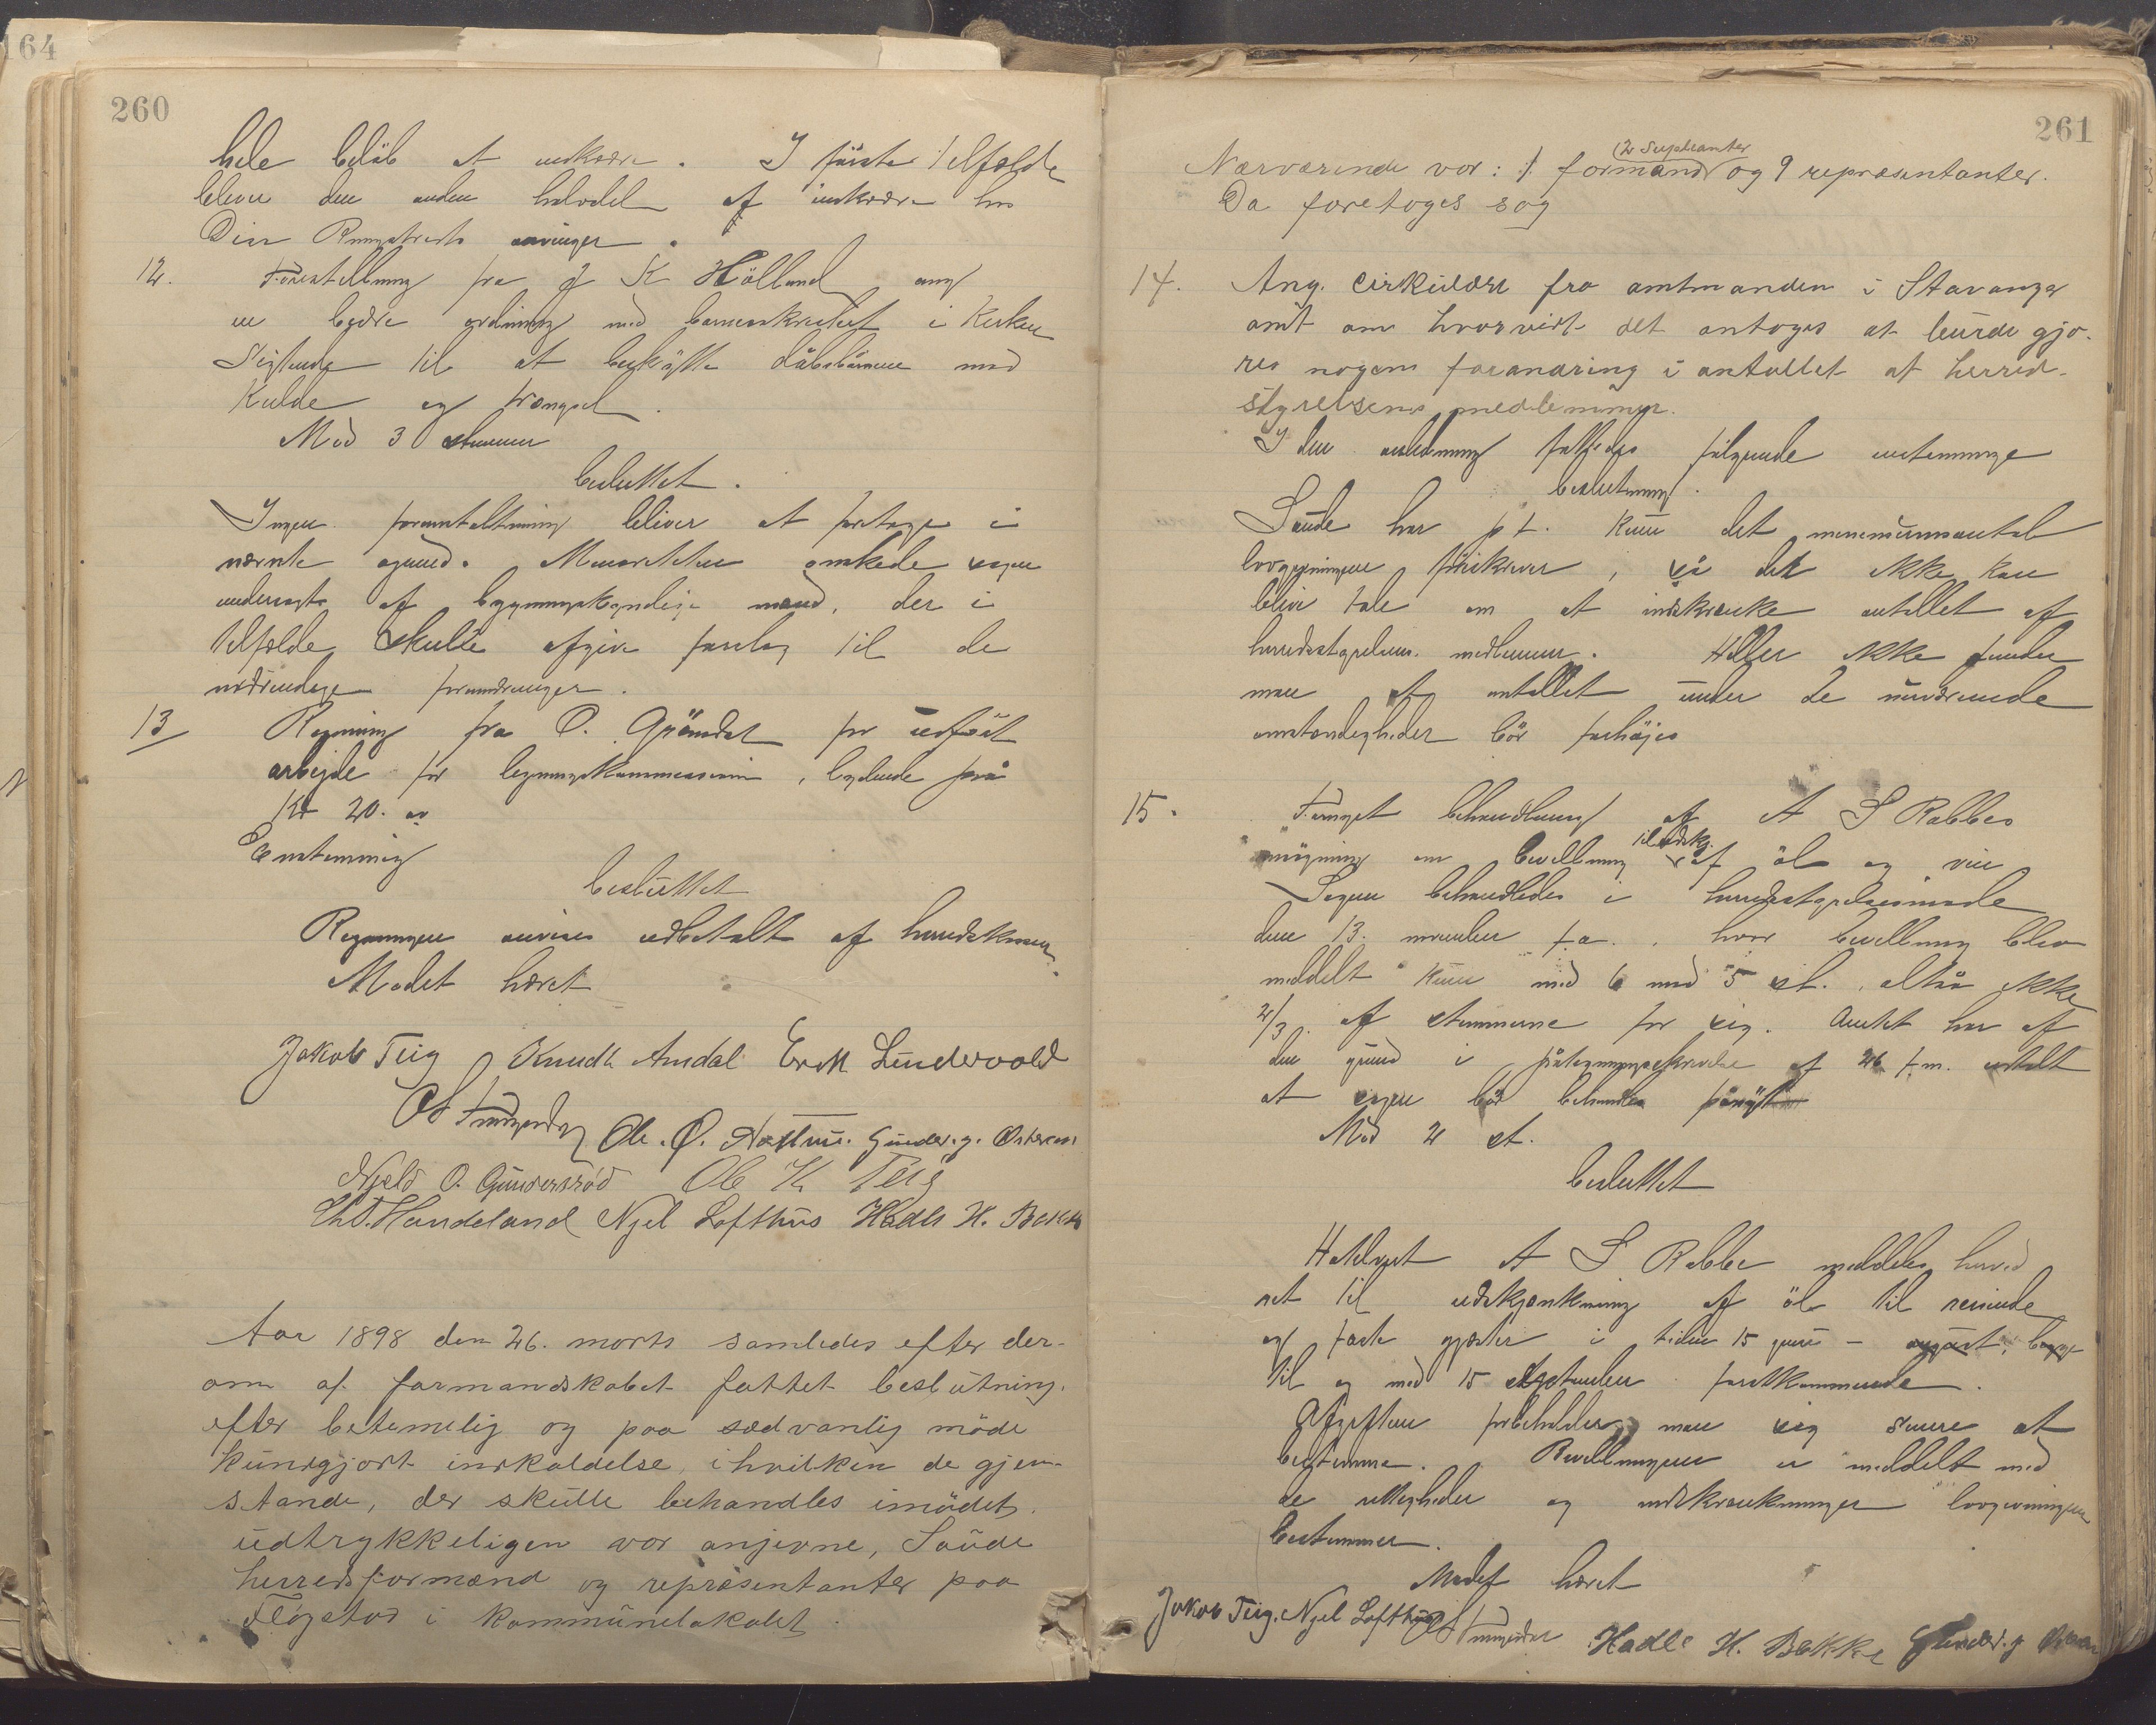 164
260
hele beløb at indkræve. I første tilfælde
bliver den anden halvdel at indkræve hos
arvinger.
12. Forestilling fra J K Hölland ang
en bedre ordning med barneskriket i Kirken
sigtende til at beskytte dåbsbarnene mod
Kulde og trængsel.
Mod 3 stemmer
besluttet.
Ingen foranstaltning bliver at foretage i
nævnte øiemed. ønskede sagen
undersøgt af bygningskyndige mænd, der i
tilfælde skulle afgive forslag til de
nødvendige forandringer.
13 Regning fra O. Gröndal for udført
arbejde for ligningskommissionen, lydende på
Kr 20.00
Enstemmig
besluttet
Regningen anvises udbetalt af herredskassen
Mødet hævet
Jakob Teig Knudt Amdal Erik Lindevold
Ole. O. Nesthus. Gunder. J. Østerhus
Njeld O. Gundersrød Ole K Teig
Chr. T. Handeland Njel Lofthus Hadle H. Bakke
Aar 1898 den 26. marts samledes efter der-
om af formandskabet fattet beslutning.
efter betimelig og paa sædvanlig måde
kundgjort indkaldelse, i hvilken de gjen-
stande, der skulde behandles i mødet.
udtrykkeligen var anjevne, Saude
herreds formænd og repræsentanter paa
Fløgstad i kommunelokalet.
261
(2 Supleanter
Nærværende var: 1. formand og 9 repræsentanter.
Da foretoges sag
14. Ang. Cirkulære fra amtmanden i Stavanger
amt om hvorvidt det antages at burde gjø-
res nogen forandring i antallet af herred-
styrelsens medlemmer.
I den anledning fattedes følgende enstemmige
beslutning.
Saude har p t. kun det minimumsantal
lovgivningen foreskriver, så det ikke kan
blive tale om at indskrænke antallet af
herredsstyrelsens medlemmer. Heller ikke finder
man at antallet under de nuværende
omstændigheder bör forhöjes
15. Fornyet behandling af A S Rabbes
til udskj.
ansögning om bevilling af öl og vin
Sagen behandledes i herredsstyrelsesmøde
den 13. november f.a., hvor bevilling blev
meddelt kun med 6 mod 5 st., altså ikke
2/3 af stemmerne for sig. Amtet har af
den grund i påtegningsskrivelse af 26 f.m. udtalt
at sagen bör behandles pånyt
Mod 2 st.
besluttet
Hotelvert A S Rabbe meddeles herved
ret til udskjænkning af öl til reisende
og faste gjæster i tiden 15 juni - august, begge
til og med 15 september førstkommende.
Afgiften forbeholder man sig senere at
bestemme. Bevillingen er meddelt med
de rettigheder og indskrænkninger lovgivningen
bestemmer.
Mødet hævet
Jakob Teig. Njel Lofthus Hadle H. Bakke Gunder. J